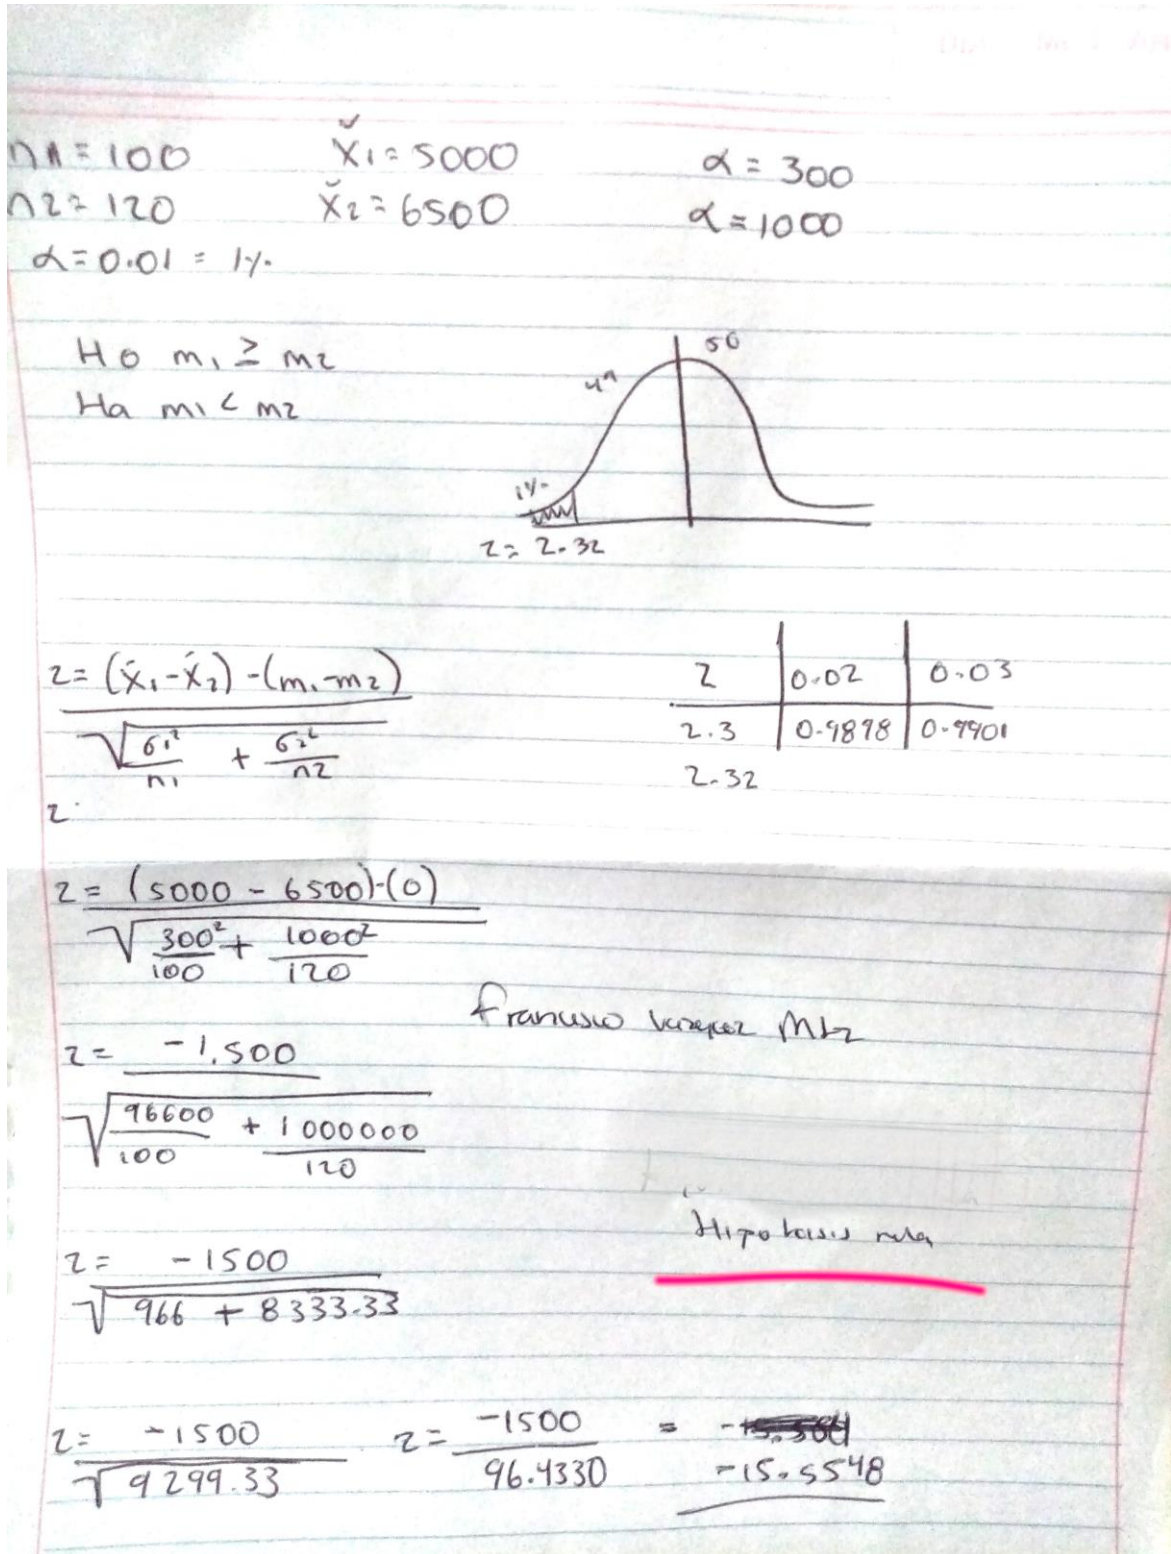 n1 = 100 x̌1 = 5000 α = 300
n2 = 120 x̌2 = 6500 α = 1000
α = 0.01 = 1%
Ho m1 ≥ m2
Ha m1 < m2
50
49
1%
z = 2.32
z = (x̄1 - x̄2) - (m1 - m2)
√ σ1²/n1 + σ2²/n2
z 0.02 0.03
2.3 0.9898 0.9901
2.32
z
z = (5000 - 6500) - (0)
√ 300²/100 + 1000²/120
z = -1.500
√ 96600/100 + 1000000/120
Hipotesis nula
z = -1500
√ 966 + 8333.33
z = -1500 z = -1500 =
√ 9299.33 96.4330 -15.5548